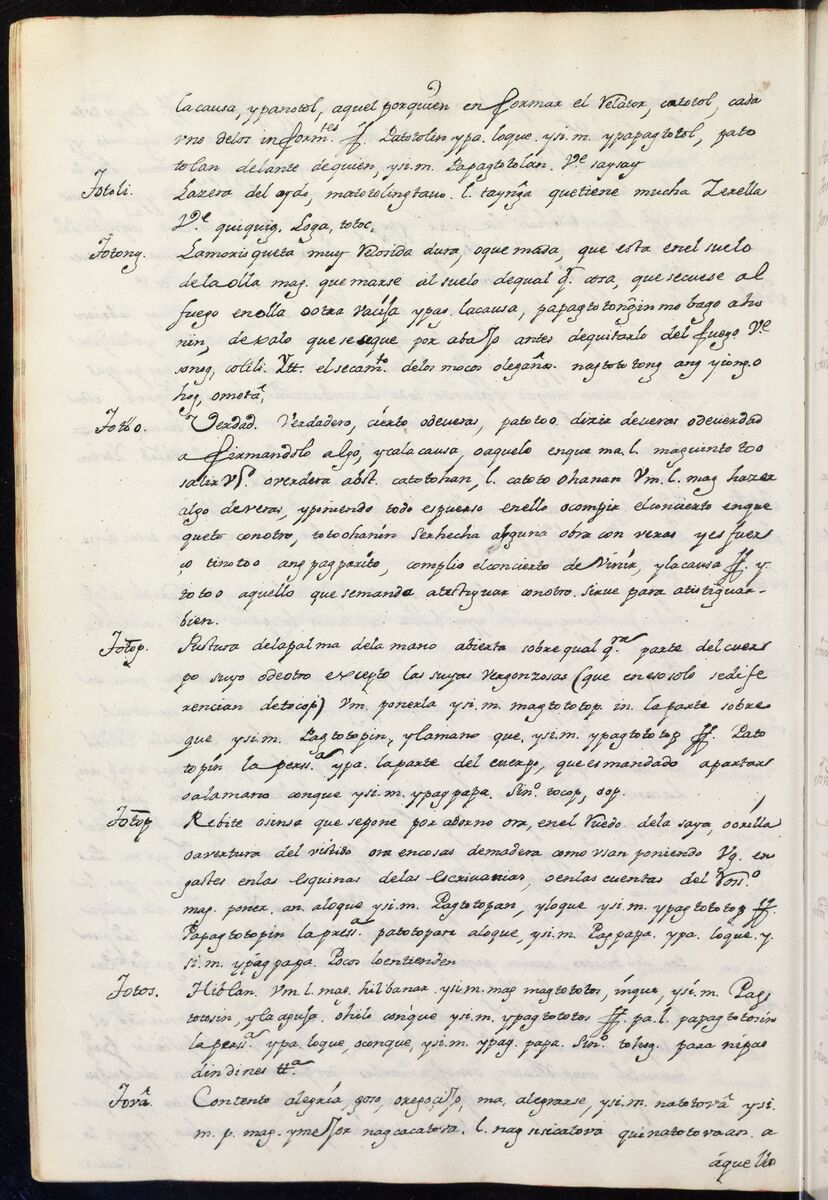 la causa, ypanotol, aquel por quien en formar el Relator, catotol, cada
vno delos inform.tes ff. Patotolin ypa. loque ysi.m. ypapagtotol, pato
tolan delante dequien, ysi.m. Papagtotolan. V.e saysay
Totoli. La zera del oydo, matotolingtauo. l. taynga quetiene mucha Zerilla
V.de quiquig, Loga, totoc,
Totong. La morisqueta muy Rosida dura, oque mada, que esta en el suelo
de la olla mag. que marse al suelo dequal q.r cosa, que secuese al
fuego en olla ootra vacija ypag. la causa, papagtotongin mo bago aho
nin, dexalo que seseque por abaxo antes dequitarlo del fuego V.e
sonog, colili. Vtt. el secam.to delos mocos olegañas. nagtototong ang
hog, omota,
Totoo. Verdad. Verdadero, cierto odeveras, patotoo dizir deveras odeverdad
a firmandolo algo, ycala causa, oaquelo enque ma. l. maguintotoo
salir Vs. overdera abst. catotohan, l. catotohanan Vm. l. mag hazer
algo de veras, yponiendo todo espuerso en ello ocomplir elconcierto enque
queto conotro, totoohanin ser hecha alguna obra con veras yesfuers
o tinotoo ang pagparito, complio elconcierto de Vinir, ylacausa ff. y
totoo aquello que semanda atestiguar conotro. sirue para atistiguar-
bien.
Totop. Postura delapalma dela mano abierta sobre qual q.ra parte del cuer
po suyo odeotro excepto las suyas vergonzosas (que en eso solo sedife
rencian detocop) Vm. ponerla ysi.m. magtototop. in. la parte sobre
que ysi.m. Pagtotopin, ylamano que, ysi.m. ypagtototop ff. Pato
topin la perss.a ypa. laparte del cuerpo, que es mandado apartars
salamano conque ysi.m. ypagpapa. Sin.o tocop, oop.
Totop Rebite osinsa que sepone por adorno ora, en el Ruedo dela saya, oorilla
oavertura del vistido ora encosas demadera como vsan poniendo Vg. en
gastes enlas esquinas delas escrivanias, oenlas cuentas del Ros.o
mag. poner. an. aloque ysi.m. Pagtotopan, yloque ysi.m. ypagtototop ff.
Papagtotopin la press.a patotopan aloque, ysi.m. Pagpapa. ypa. loque, y
si.m. ypagpapa. Pocos loentienden
Totos. Hiblan. Vm. l. mag. hilbanar. ysi.m. mag magtototos, inque, ysi.m. Pag
totosin, ylaguja ohilo conque ysi.m. ypagtototos ff. pa. l. papagtotosin
la perss.a ypa. loque, oconque, ysi.m. ypag. papa. Sin.o tohog. para nipas
dindines tt.a
Tova. Contento alegria, goso, oregocijo, ma. alegrarse, ysi.m. natotova ysi.
m. p. mag. ymejor nagcacatova. l. nag sisicatova quinatotovaan. a
áquello